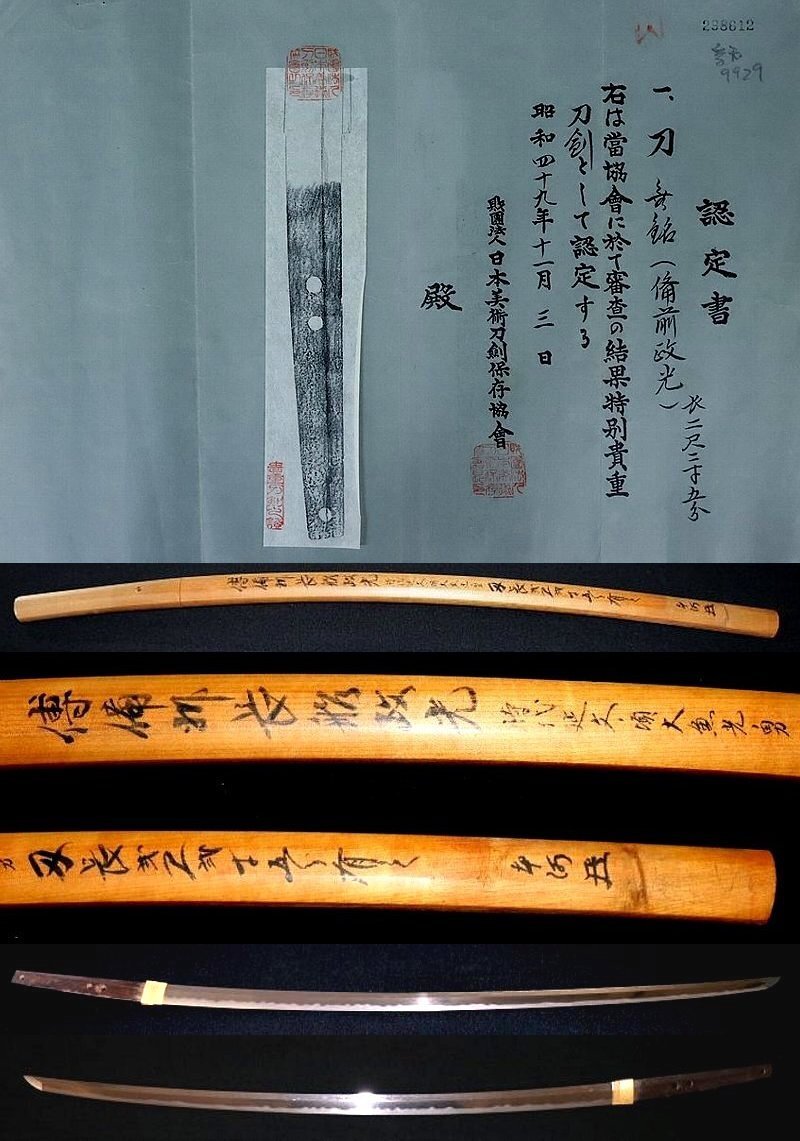 298612
9929
認定書
一、刀 無銘(備前政光)
長二尺二寸五分
右は當協會に於て審査の結果特別貴重
刀劍として認定する
昭和四十九年十一月三日
財團法人日本美術刀劍保存協會
殿
傳備州長船政光
時代延文頃
刃長貳尺貳寸五分有之